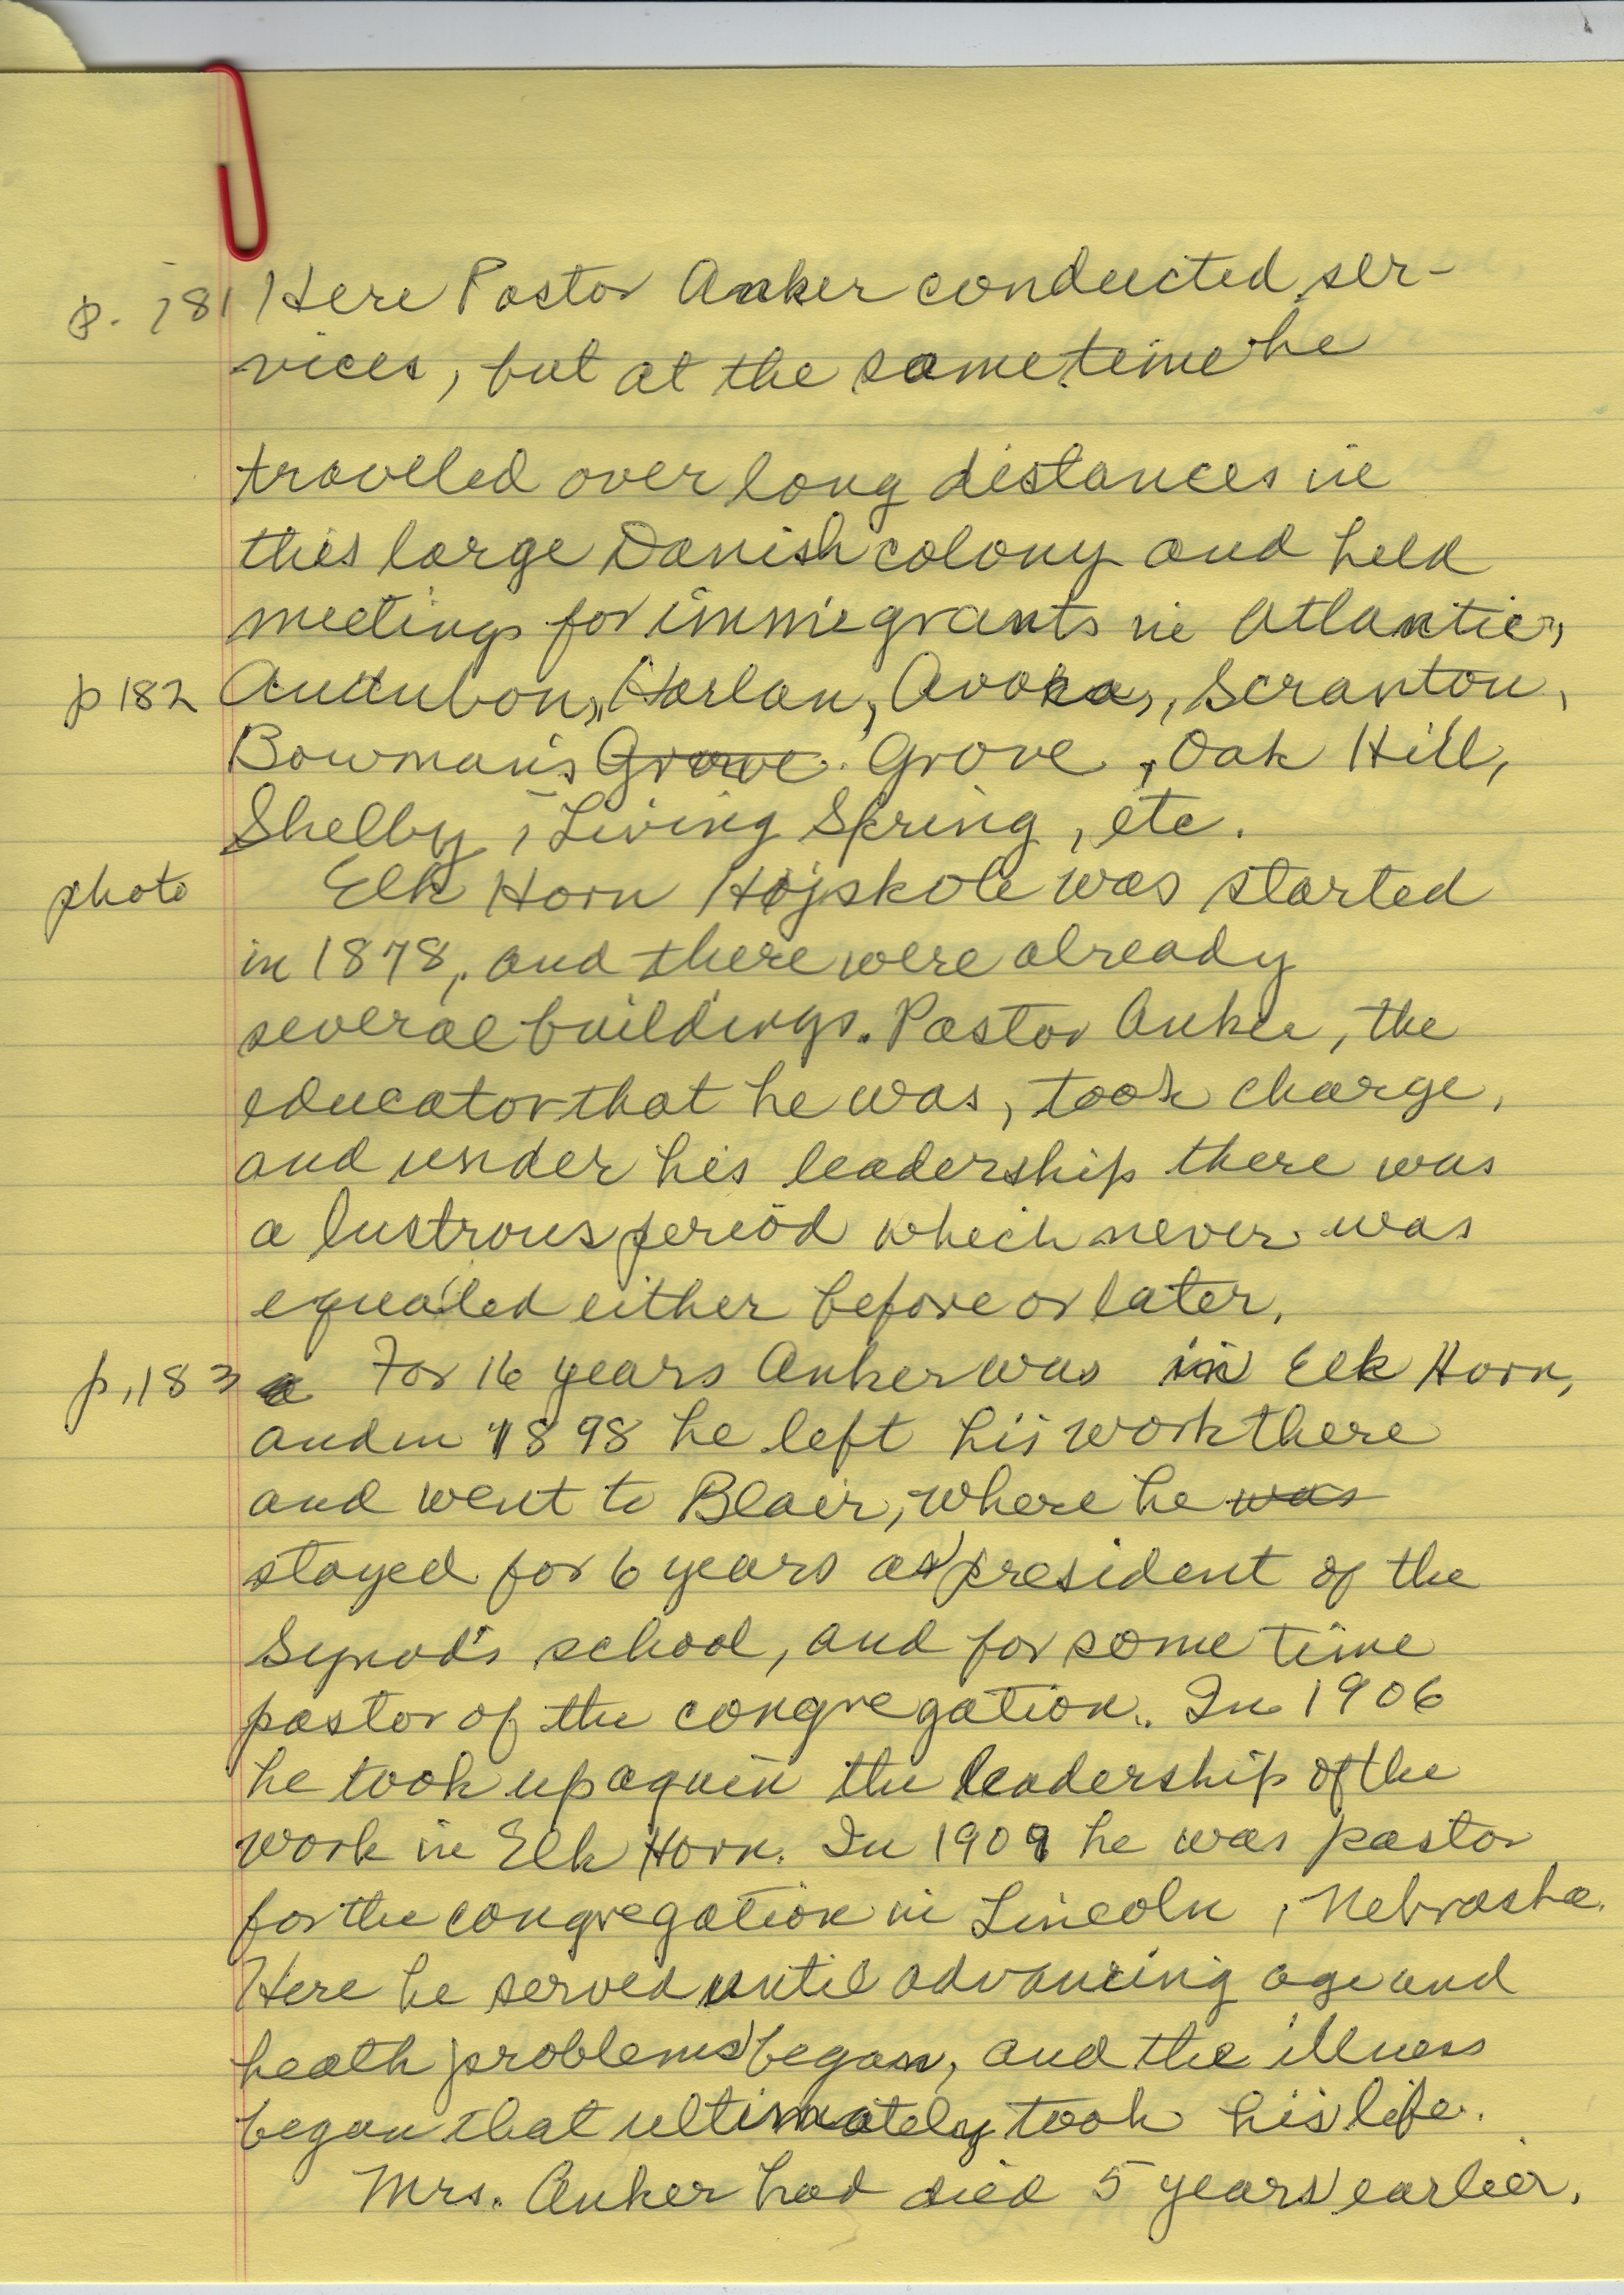 p. 181 Here Pastor Anker conducted ser-
vices, but at the same time he
traveled over long distances in
this large Danish colony and held
meetings for immigrants in Atlantic,
p 182 Audubon, Harlan, Avoka, Scranton,
Bowman's Grove Grove, Oak Hill,
Shelby, Living Spring, etc.
photo Elk Horn Højskole was started
in 1878, and there were already
several buildings. Pastor Anker, the
educator that he was, took charge,
and under his leadership there was
a lustrous period which never was
equaled either before or later.
p. 183 For 16 years Anker was in Elk Horn,
and in 1898 he left his work there
and went to Blair, where he was
stayed for 6 years as president of the
Synod's school, and for some time
pastor of the congregation. In 1906
he took up again the leadership of the
work in Elk Horn. In 1909 he was pastor
for the congregation in Lincoln, Nebraska.
Here he served until advancing age and
heath problems began, and the illness
began that ultimately took his life.
Mrs. Anker had died 5 years earlier.